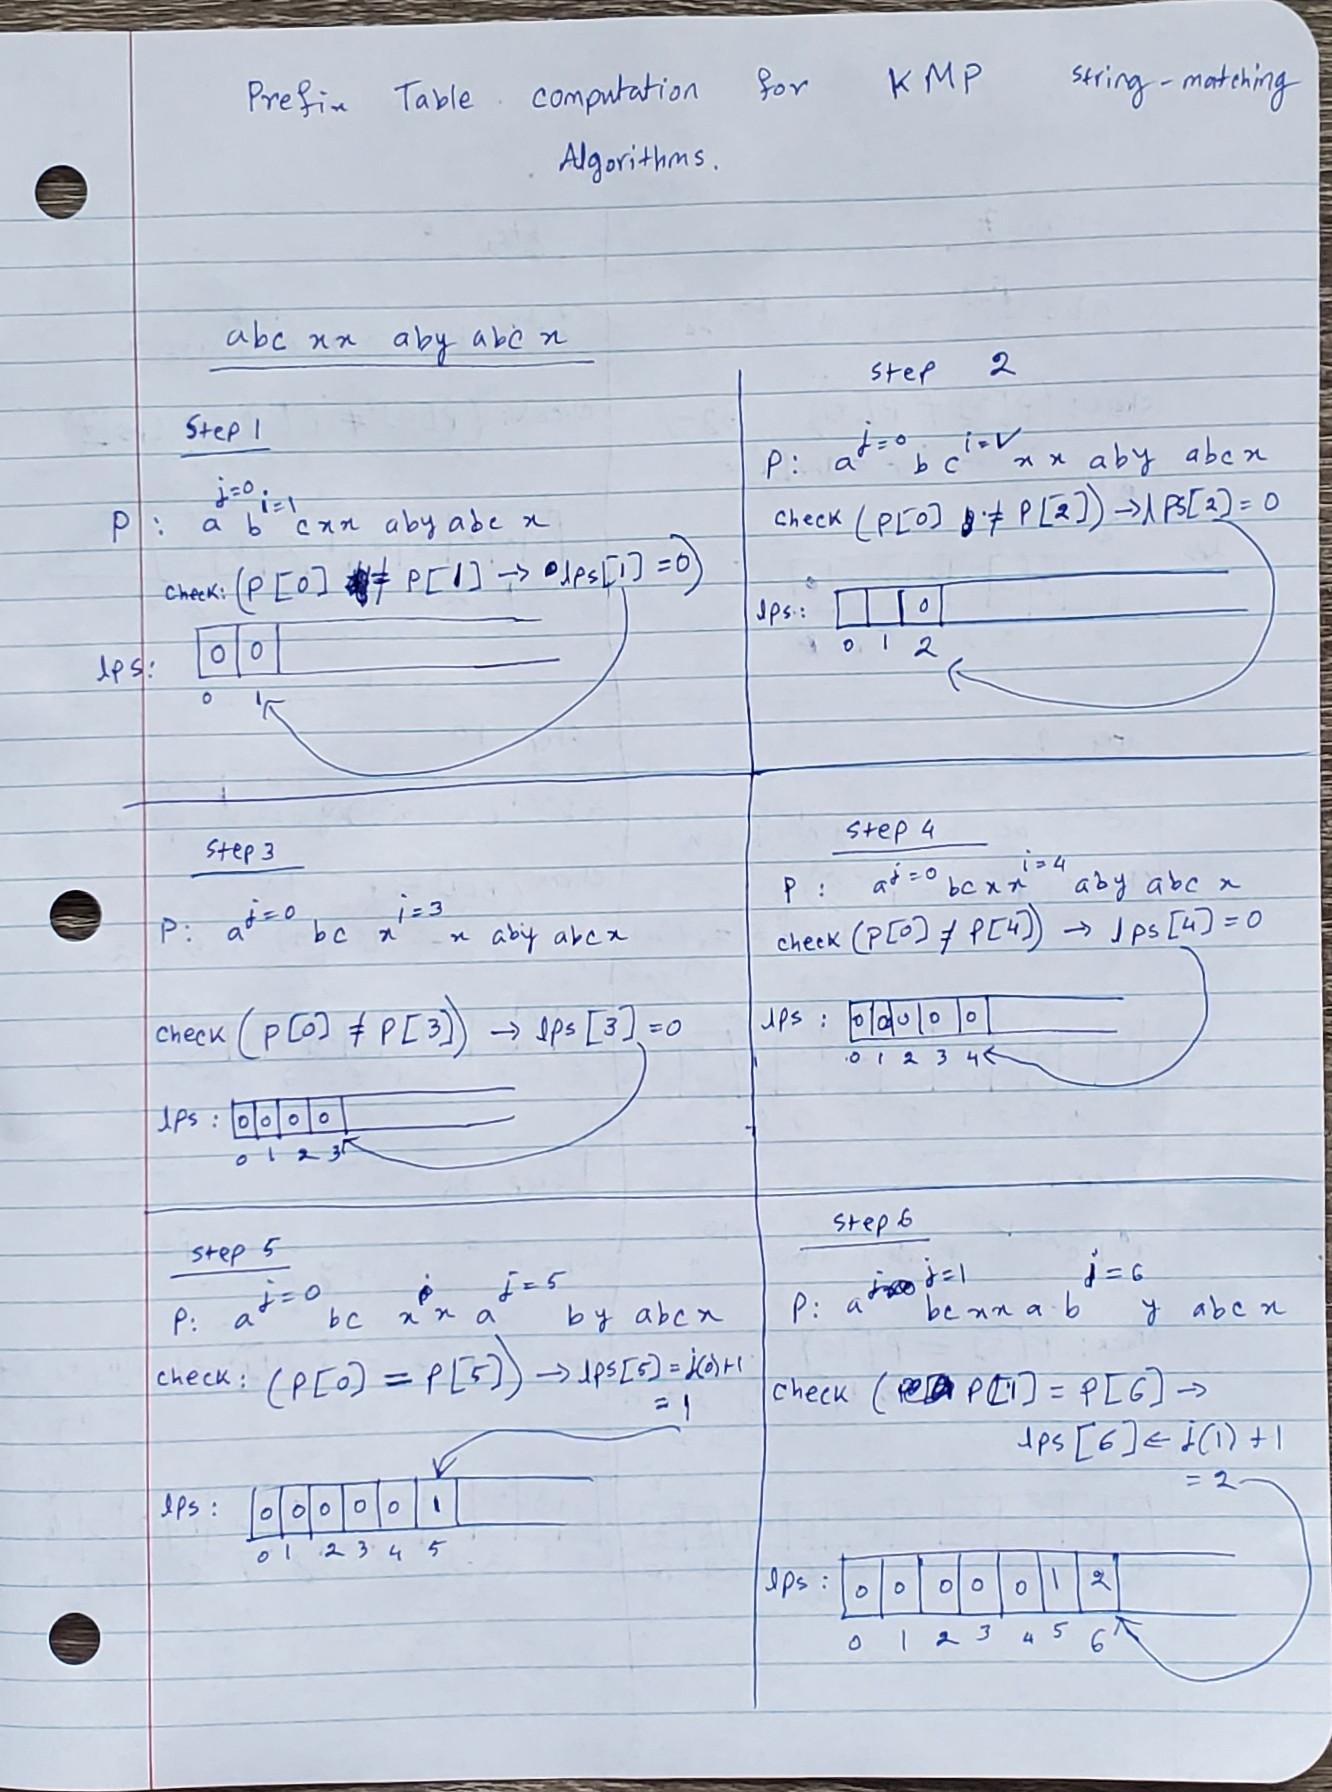 Prefix Table computation for KMP string-matching
Algorithms.
abc xx aby abc x
Step 1
j=0 i=1
P : a b c x x aby abc x
Check: (P[0] ≠ P[1] → lps[1] = 0)
lps: 0 0
0 1
Step 2
j=0 i=
P: a b c x x aby abc x
Check (P[0] ≠ P[2]) → lps[2] = 0
lps: 0
0 1 2
Step 3
j=0 i=3
P: a bc x x aby abc x
check (P[0] ≠ P[3]) → lps[3] = 0
lps : 0 0 0 0
0 1 2 3
Step 4
j=0 i=4
P : a bc x x aby abc x
check (P[0] ≠ P[4]) → lps[4] = 0
lps : 0 0 0 0 0
0 1 2 3 4
Step 5
j=0 j=5
P: a bc x x a by abc x
check: (P[0] = P[5]) → lps[5] = j(0)+1
= 1
lps : 0 0 0 0 0 1
0 1 2 3 4 5
Step 6
j=1 j=6
P: a bc x x a b y abc x
check ( P[1] = P[6] →
lps[6] ← j(1) + 1
= 2
lps : 0 0 0 0 0 1 2
0 1 2 3 4 5 6